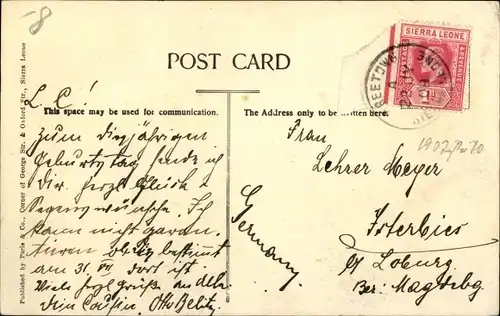 -8
SIERRA LEONE
POSTAGE
FREETOWN
POST CARD
This space may be used for communication.
The Address only to be written here.
Published by Paris & Co., Corner of George Str. & Oxford Str., Sierra Leone
L. C!
Zum diesjährigen
Geburtstag sende ich
Dir herzl. Glück &
Segenswünsche. Ich
kann nicht garan-
tieren ob es bestimmt
am 31. VII dort ist
Viele herzl. Grüße an alle
Dein Cousin, Otto Belitz.
Frau
Lehrer Meyer
Isterbies
b/ Loburg
Bez. Magdebg
Germany.